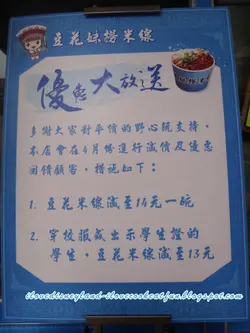 豆花妹撈米線
優惠大放送
多謝大家對平價的野心玩支持，
本店會在4月份進行減價及優惠
回饋顧客，措施如下：
1. 豆花米線減至14元一碗
2. 穿校服或出示學生證的
學生，豆花米線減至13元
ilovedisneyland-ilovecookeatfun.blogspot.com